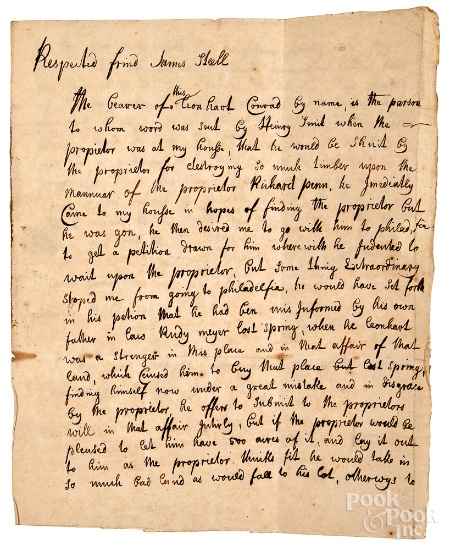 Respected frind James Steell
The bearer of this Lionhart Conrad by name, is the parson
to whom word was sent by Henry Smit when the
propietor was at my housse, that he would be Shuit by
the proprietor for destroying so much timber upon the
mannuar of the proprietor Richard penn, he Jmediatly
Came to my housse in hopes of finding the proprietor but
he was gon, he then desired me to go with him to philadfia
to get a petition drawn for him wherewith he Jntented to
wait upon the proprietor, but some thing Extraordinary
stoped me from going to philadelfia, he would have set forth
in his petion that he had ben mis Jnformed by his own
father in law Rudy meyer last spring, when he Leonhart
was a strenger in this place and in that affair of that
land, which Caused him to buy that place but last spring,
finding himself now under a great mistake and in disgrace
by the proprietor, he offers to submit to the proprietors
will in that affair Jntirly, but if the proprietor would be
pleased to let him have 500 acres of it, and lay it out
to him as the proprietor thinks fit he would take in
so much bad land as would fall to his lot, otherways to
POOK
& POOK Inc